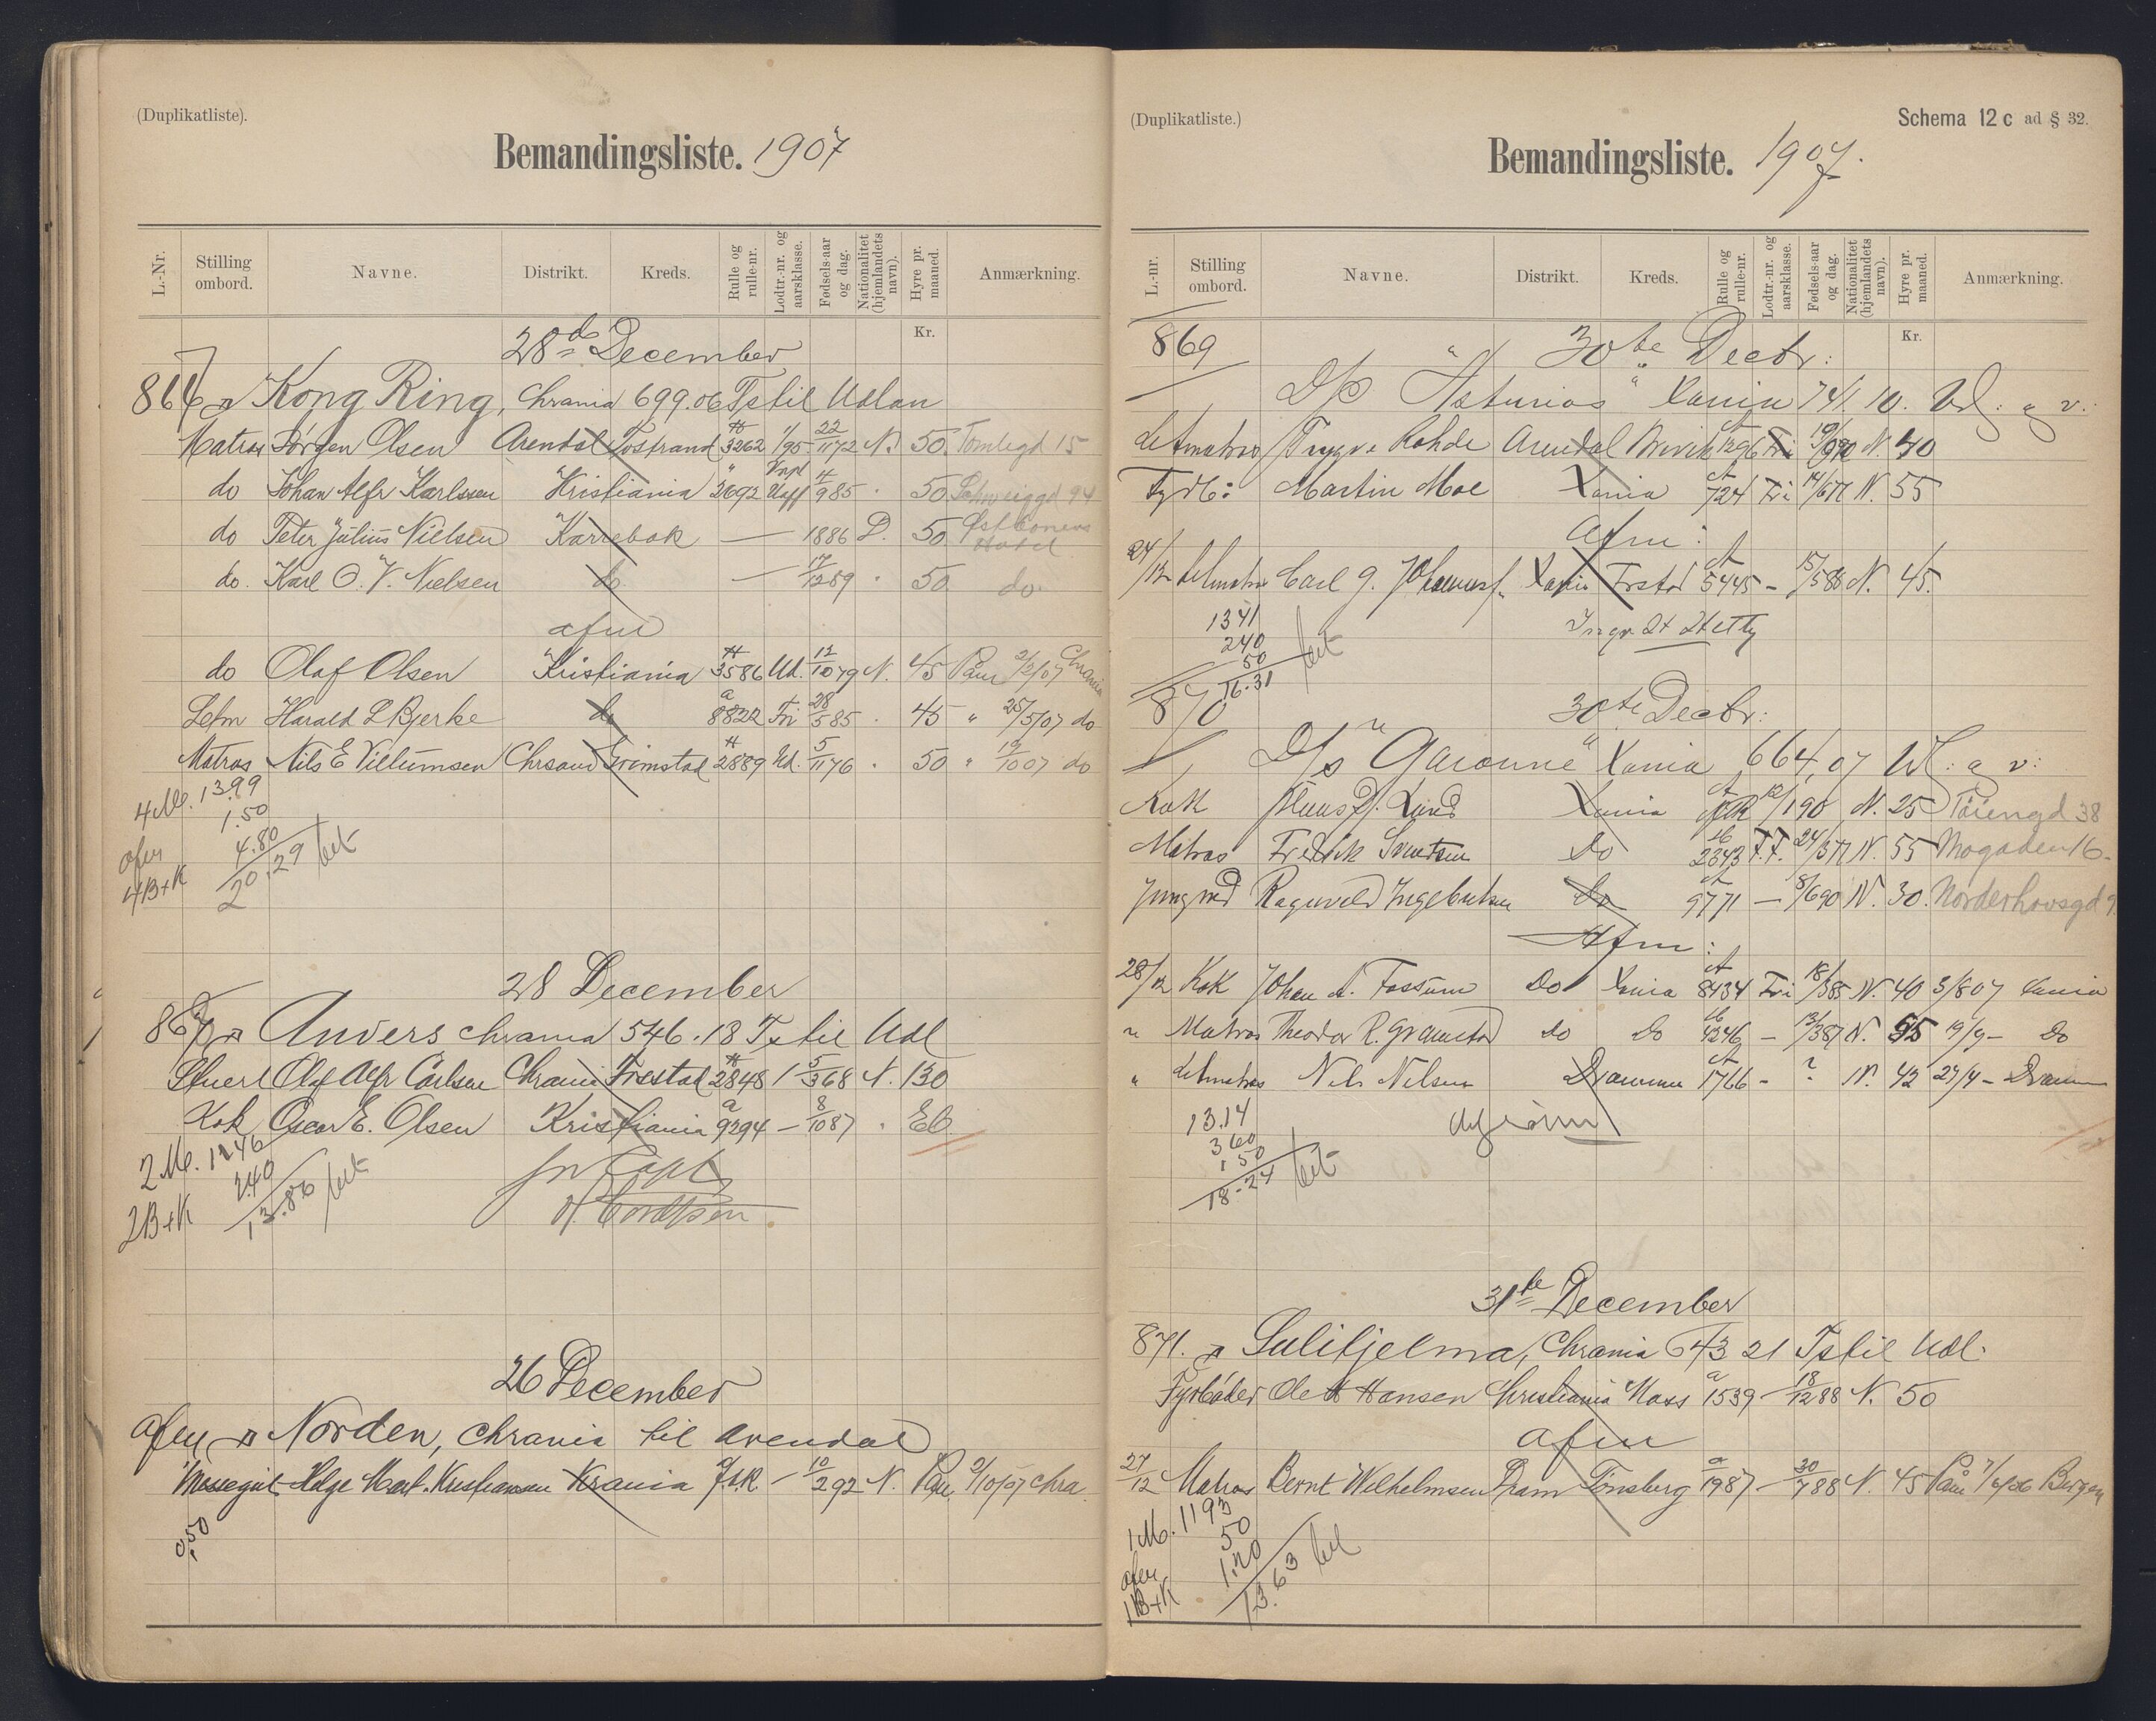 (Duplikatliste).
Bemandingsliste. 1907
L.-Nr. Stilling ombord. Navne. Distrikt. Kreds. Rulle og rulle-nr. Lodtr.-nr. og aarsklasse. Fødsels-aar og dag. Nationalitet (hjemlandets navn). Hyre pr. maaned. Anmærkning.
Kr.
28de December
866 Kong Ring, Chrania 699.06 Ts til Udlan
Matros Jørgen Olsen Arendal Tostrand 3262 1/95 22/1172 N. 50. Tomtegd 15
do Johan Alfr Karlssen Kristiania 2692 4/985 50
do Peter Julius Nielsen Karrebæk — 1886 D. 50 Hotel
do. Karl O. V. Nielsen do — 17/1289 50 do
afm
do Olaf Olsen Kristiania 3586 Ud. 12/1079 N. 45 Paam 2/2/07 Chrania
Letm Harald L Bjerke do a 8822 Fri 28/585 45 " 25/5/07 do
Matros Nils E Villumsen Chrsand Grimstad 2889 Ud. 5/1176 50 " 19/1007 do
4 M. 13.99
1.50
afm 4.80
4B+K 20.29 bet
28 December
867 Anvers Chrania 546.18 Ts til Udl
Stuert Olaf Alfr Carlsen Chrania Frestad 2848 1 5/368 N. 130
Kok Oscar E. Olsen Kristiania a 9294 — 8/1087 Eb
2 M. 11.46
2.40
2B+K 13.86 bet
26 December
afm Norden, Chrania til Arendal
Messegut Helge Marl. Kristiansen Krania — 10/292 N. Paam 9/10/07 Chra
0,50
(Duplikatliste.)
Schema 12 c ad § 32.
Bemandingsliste. 1907.
L.-nr. Stilling ombord. Navne. Distrikt. Kreds. Rulle og rulle-nr. Lodtr.-nr. og aarsklasse. Fødsels-aar og dag. Nationalitet (hjemlandets navn). Hyre pr. maaned. Anmærkning.
Kr.
869 30te Decbr:
D/S "Asturias" Xania 741.10. Udl: a v:
Letmatros Trygve Rohde Arendal Narvik 1296 Fri N. 40
Fyrb: Martin Moe Xania 724 Fri 14/677 N. 55
Afm:
24/12 Letmatros Carl G. Xania Frstad 5445 — 15/588 N. 45.
1341
240
50
16.31 bet
870 30te Decbr:
D/s "Garonne" Xania 664,07 Udl: a v:
Kok Lund Xania 12/190 N. 25 Töiengd 38
Matros Fredrik Do 2343 F.F. 24/377 N. 55 Mogaden 16.
Jungmd Ragnvald Ingebretsen Do 9771 — 8/690 N. 30. Norderhovsgd 9
Afm:
28/12 Kok Johan A. Fossum Do Xania 8434 Fri 18/385 N. 40 3/8 07 Xania
" Matros Theodor R. Gramstad do do 4246 — 13/387 N. 55 19/9 — do
" Letmatros Nils Nilsen Drammen 1766 — ? N. 42 27/4 — Drammen
13.14
360
1 50
18.24 bet
31te December
871. Sulitjelma, Chrania 643 21 Ts til Udl.
Fyrbøder Ole H Hansen Christiania Moss a 1539 — 18/1288 N. 50
afm
27/12 Matros Bernt Wilhelmsen Dram Tønsberg a 1987 — 30/788 N. 45 Paam 7/6/06 Bergen
1 M. 1193
afm 50
1B+K 1.20
13.63 bet